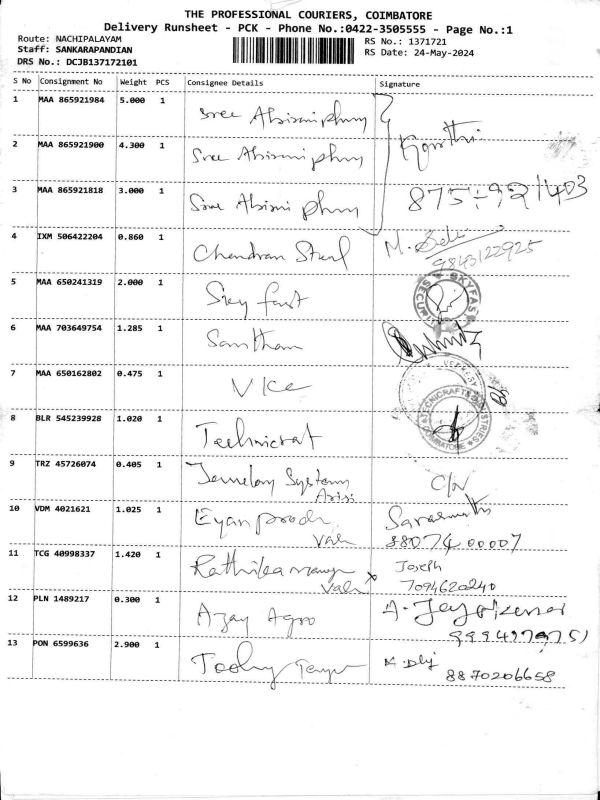 THE PROFESSIONAL COURIERS, COIMBATORE
Delivery Runsheet - PCK - Phone No.:0422-3505555 - Page No.:1
Route: NACHIPALAYAM RS No.: 1371721
Staff: SANKARAPANDIAN RS Date: 24-May-2024
DRS No.: DCJB137172101
S No Consignment No Weight PCS Consignee Details Signature
1 MAA 865921984 5.000 1 Sree Abirami phny
2 MAA 865921900 4.300 1 Sree Abirami phny
3 MAA 865921818 3.000 1 Sree Abirami phny
4 IXM 506422204 0.860 1 Chandran Steel M. 9843122925
5 MAA 650241319 2.000 1 Sky fast SKYFAS
6 MAA 703649754 1.285 1 Santham
7 MAA 650162802 0.475 1 V Kce
8 BLR 545239928 1.020 1 Technicrat COIMBATORE
9 TRZ 45726074 0.405 1 Systems C/N
10 VDM 4021621 1.025 1 Eyan prods 88074 00007
11 TCG 40998337 1.420 1 Joseph
7094620240
12 PLN 1489217 0.300 1 Ajay Agro A. Jayakumar
13 PON 6599636 2.900 1 8870206658